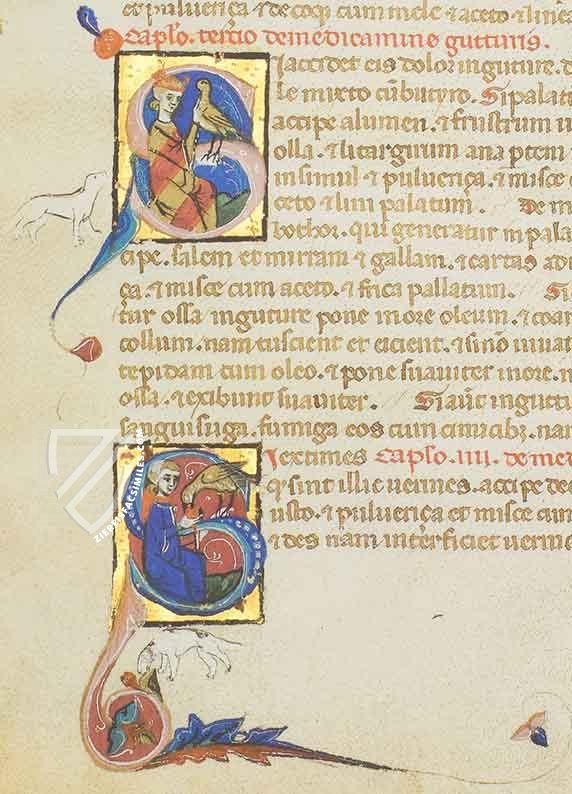 et puluerica ⁊ de coq cum melle ⁊ aceto ⁊
Caplo. tertio de medicamine gutturis.
Si accidet eis dolor in guture. d
le mixto cũ butyro. Si palat
accipe alumen. ⁊ frustrum u
olla. ⁊ litargirum ana ptem
insimul ⁊ puluerica. ⁊ misce
ceto ⁊ lini palatum. De m
bothor. qui generatur in pala
cipe. salem et mirram ⁊ gallam. ⁊ cartas
ca. ⁊ misce cum aceto. ⁊ frica pallatum. Si
tur ossa in guture pone in ore oleum. ⁊ coar
collum. nam tuscient et eicient. ⁊ si nõ
tepidam cum oleo. ⁊ pone suauiter in ore.
ossa. ⁊ exibunt suauiter. Si aũt in gutu
sanguisuga. fumiga eos cum cimicibz. nam
Si extimes Caplo. iiii. de med
q sint illic uermes. accipe de
usto. ⁊ puluerica et misce cum
⁊ des nam interficiet uerme
ZIEREIS FACSIMILES.COM